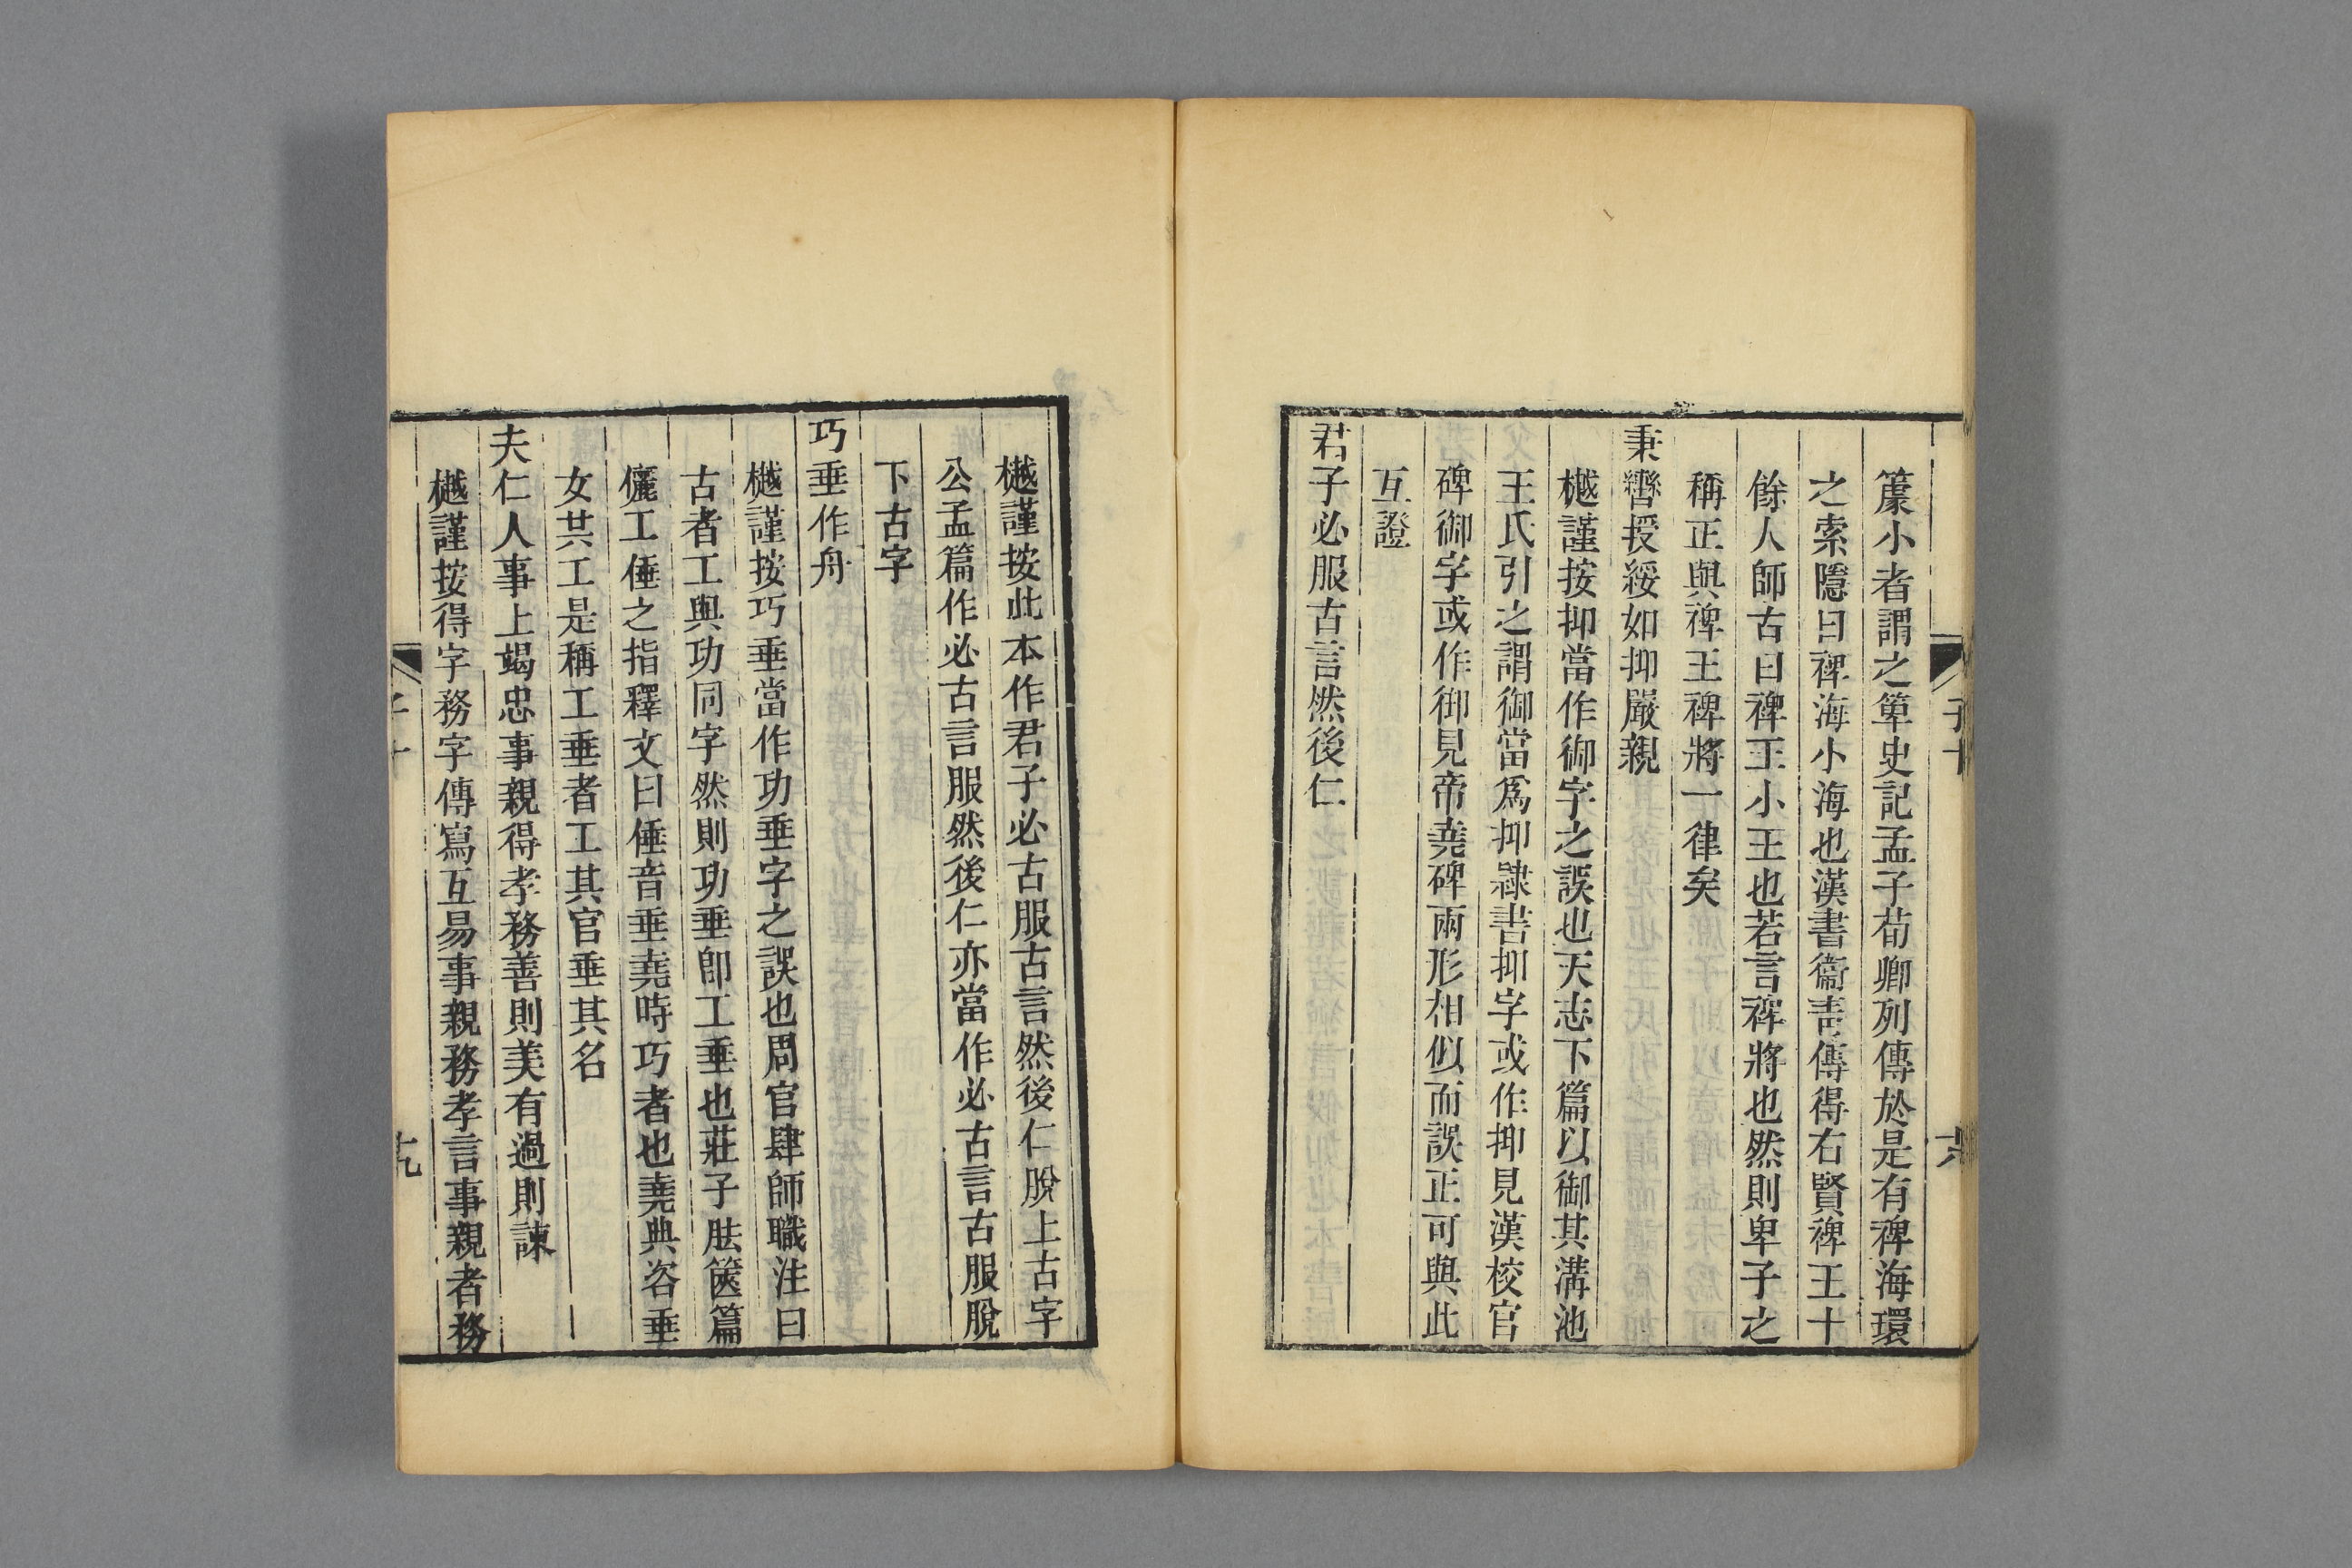 篆小者謂之箄史記孟子荀卿列傳於是有裨海環
之索隱曰裨海小海也漢書衞青傳得右賢裨王十
餘人師古曰裨王小王也若言裨將也然則卑子之
稱正與裨王裨將一律矣
秉轡授綏如抑嚴親
樾謹按抑當作御字之誤也天志下篇以御其溝池
王氏引之謂御當爲抑隸書抑字或作抑見漢校官
碑御字或作御見帝堯碑兩形相似而誤正可與此
互證
君子必服古言然後仁
樾謹按此本作君子必古服古言然後仁脫上古字
公孟篇作必古言服然後仁亦當作必古言古服脫
下古字
巧垂作舟
樾謹按巧垂當作功垂字之誤也周官肆師職注曰
古者工與功同字然則功垂卽工垂也莊子胠篋篇
儷工倕之指釋文曰倕音垂堯時巧者也堯典咨垂
女共工是稱工垂者工其官垂其名
夫仁人事上竭忠事親得孝務善則美有過則諫
樾謹按得字務字傳寫互易事親務孝言事親者務
十九